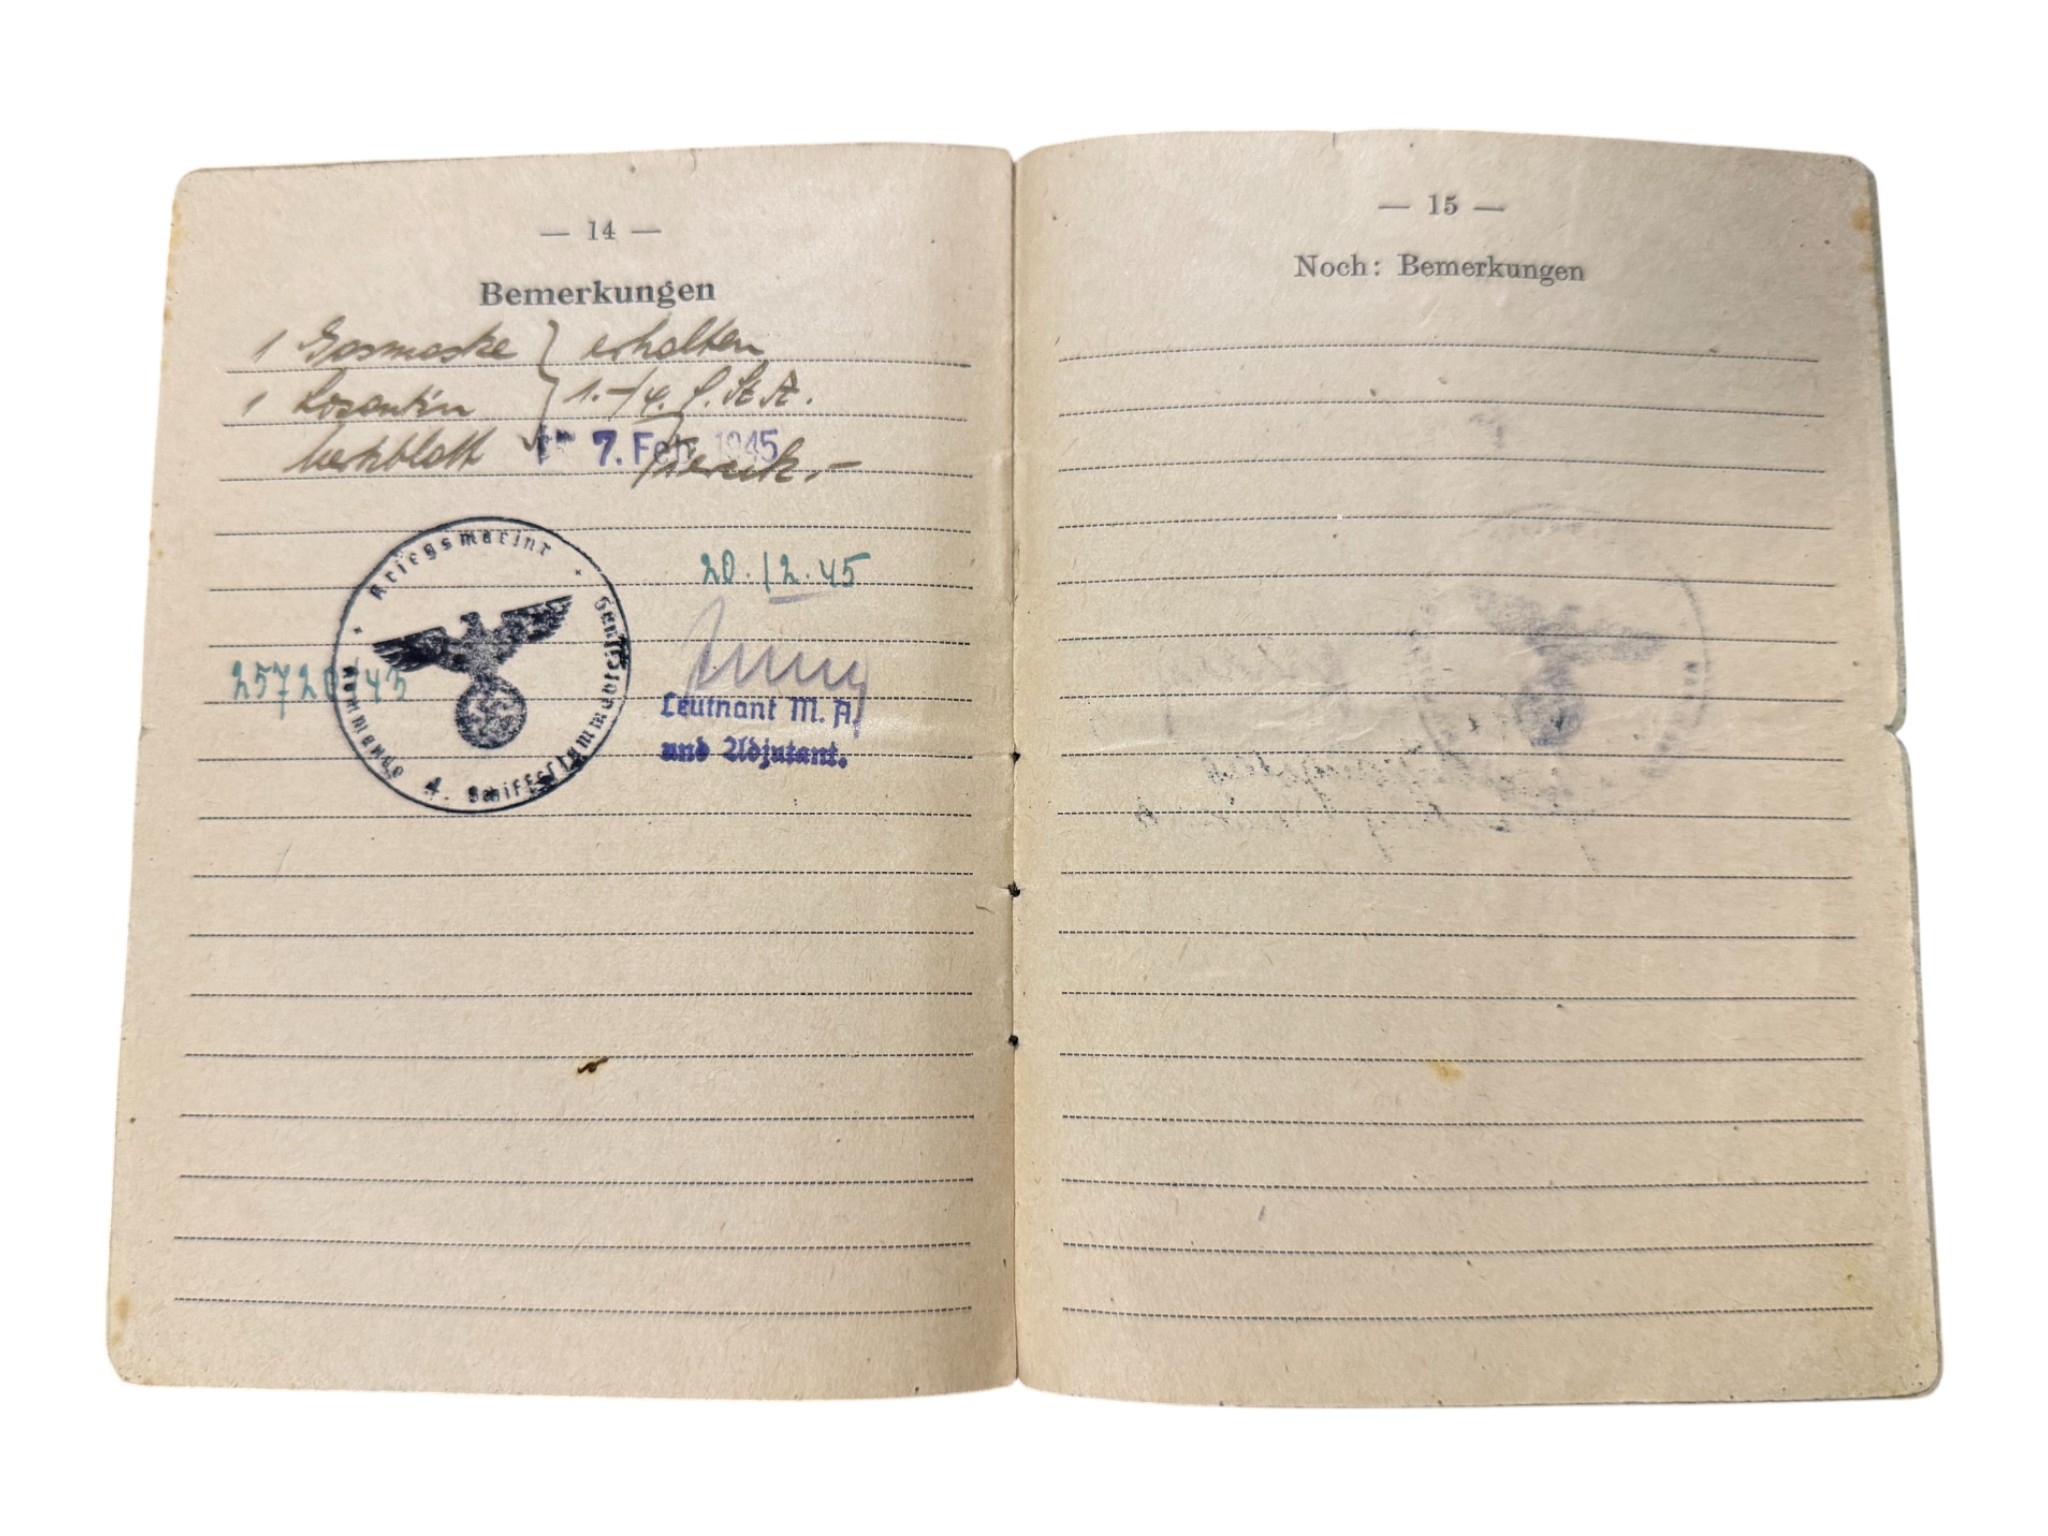 — 14 —
Bemerkungen
1 Gasmaske } erhalten
1 Losantin 1.-/4. S. St. A.
Merkblatt 7. Feb. 1945
Kriegsmarine
Kommando 4. Schiffsstammabt.
20.12.45
25720/45
Leutnant M. A.
und Adjutant.
— 15 —
Noch: Bemerkungen